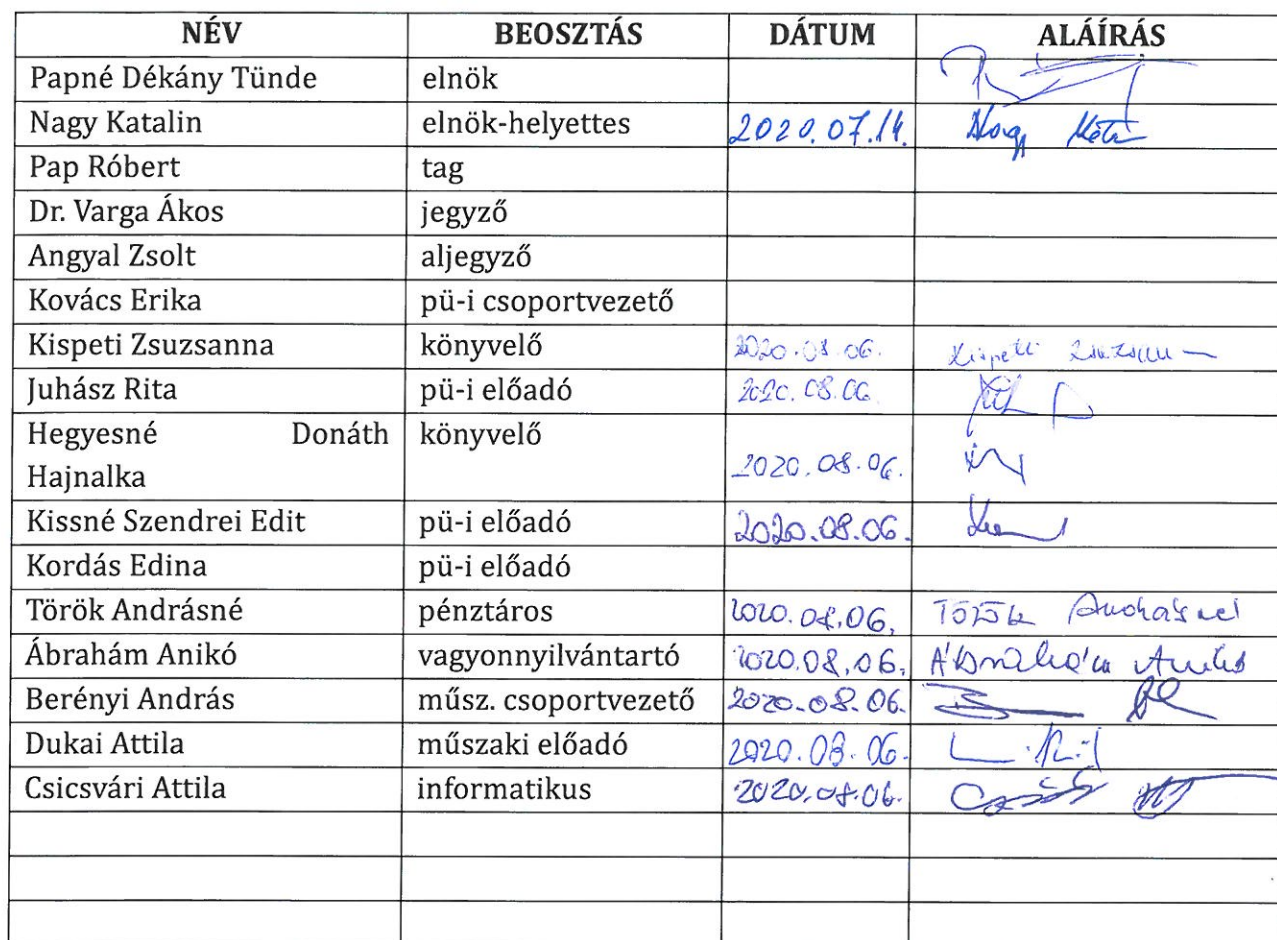 NÉV BEOSZTÁS DÁTUM ALÁÍRÁS
Papné Dékány Tünde elnök
Nagy Katalin elnök-helyettes 2020.07.14. Nagy Kata
Pap Róbert tag
Dr. Varga Ákos jegyző
Angyal Zsolt aljegyző
Kovács Erika pü-i csoportvezető
Kispeti Zsuzsanna könyvelő 2020.08.06. Kispeti Zsuzsanna
Juhász Rita pü-i előadó 2020.08.06.
Hegyesné Donáth könyvelő
Hajnalka 2020.08.06.
Kissné Szendrei Edit pü-i előadó 2020.08.06.
Kordás Edina pü-i előadó
Török Andrásné pénztáros 2020.08.06. Török Andrásné
Ábrahám Anikó vagyonnyilvántartó 2020.08.06. Ábrahám Anikó
Berényi András műsz. csoportvezető 2020.08.06.
Dukai Attila műszaki előadó 2020.08.06.
Csicsvári Attila informatikus 2020.08.06.